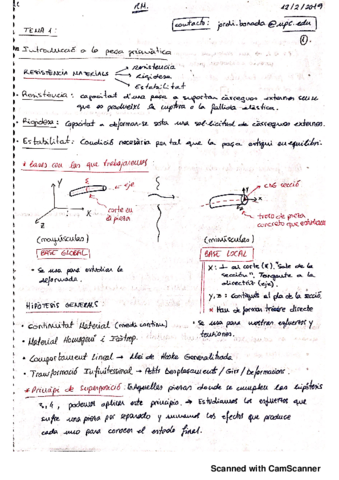 R.M. 12/2/2019
TEMA 1:
contacto: jordi.bonada@upc.edu
①
Introducció a la peça prismàtica
RESISTÈNCIA MATERIALS
Resistència
Rigidesa
Estabilitat
• Resistència: capacitat d'una peça a suportar càrregues externes sense
que es produeixi la ruptura o la fallida elàstica.
• Rigidesa: Capacitat a deformar-se sota una sol·licitud de càrregues externes.
• Estabilitat: Condició necessària per tal que la peça estigui en equilibri.
* Bases con las que trabajaremos
Y
X
Z
E
eje
corte en
la pieza
y
z
x
CDG secció
trozo de pieza
concreto que estudiamos
(mayúsculas)
BASE GLOBAL
• Se usa para estudiar la
deformada.
(minúsculas)
BASE LOCAL
x: ⊥ al corte (E). "Sale de la
sección". Tangente a la
directriz (eje).
y, z: contenidos al pla de la secció.
* Han de formar triedro directe
• Se usa para nuestros esfuerzos y
tensiones.
HIPÒTESIS GENERALS:
• Continuïtat Material (medi continu)
• Material Homogeni i Isòtrop.
• Comportament Lineal → Llei de Hooke Generalitzada
• Transformació Infinitesimal → Petits Desplaçaments / Girs / Deformacions.
* Principi de Superposició: En aquelles piezas donde se cumplen las hipótesis
3, 4, podemos aplicar este principio. → Estudiamos los esfuerzos que
sufre una pieza por separado y sumamos los efectos que produce
cada uno para conocer el estado final.
Scanned with CamScanner